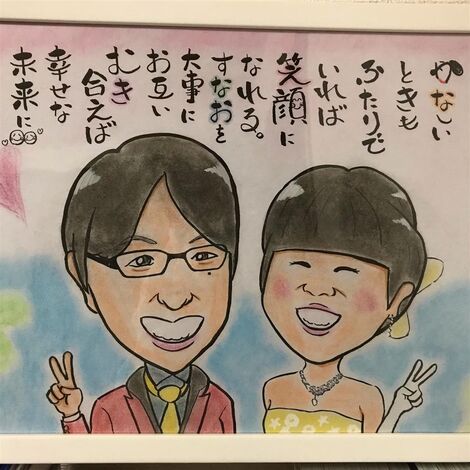 かなしい
ときも
ふたりで
いれば
笑顔に
なれる。
すなおを
大事に
お互い
むき
合えば
幸せな
未来に